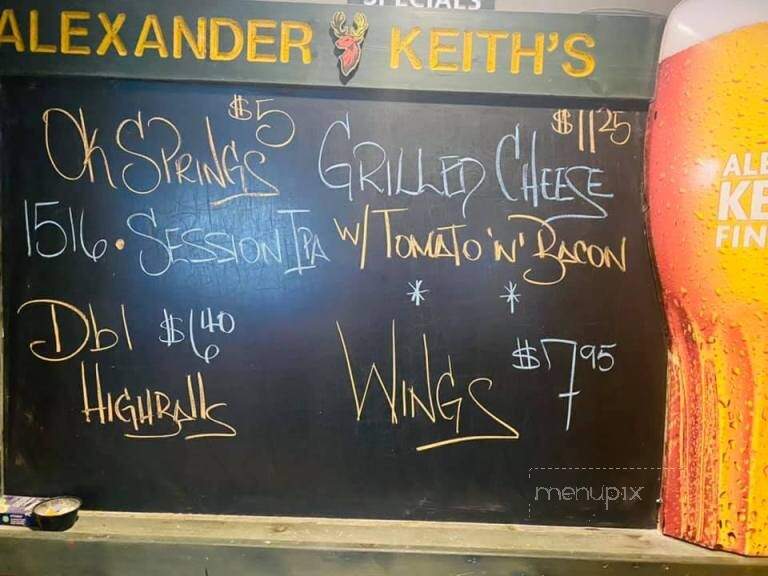 SPECIALS
ALEXANDER KEITH'S
OK SPRINGS $5
1516 • SESSION IPA
Dbl $6 40
HIGHBALLS
GRILLED CHEESE $11 25
W/ TOMATO 'N' BACON
* *
WINGS $7 95
ALE
KE
FIN
menupix